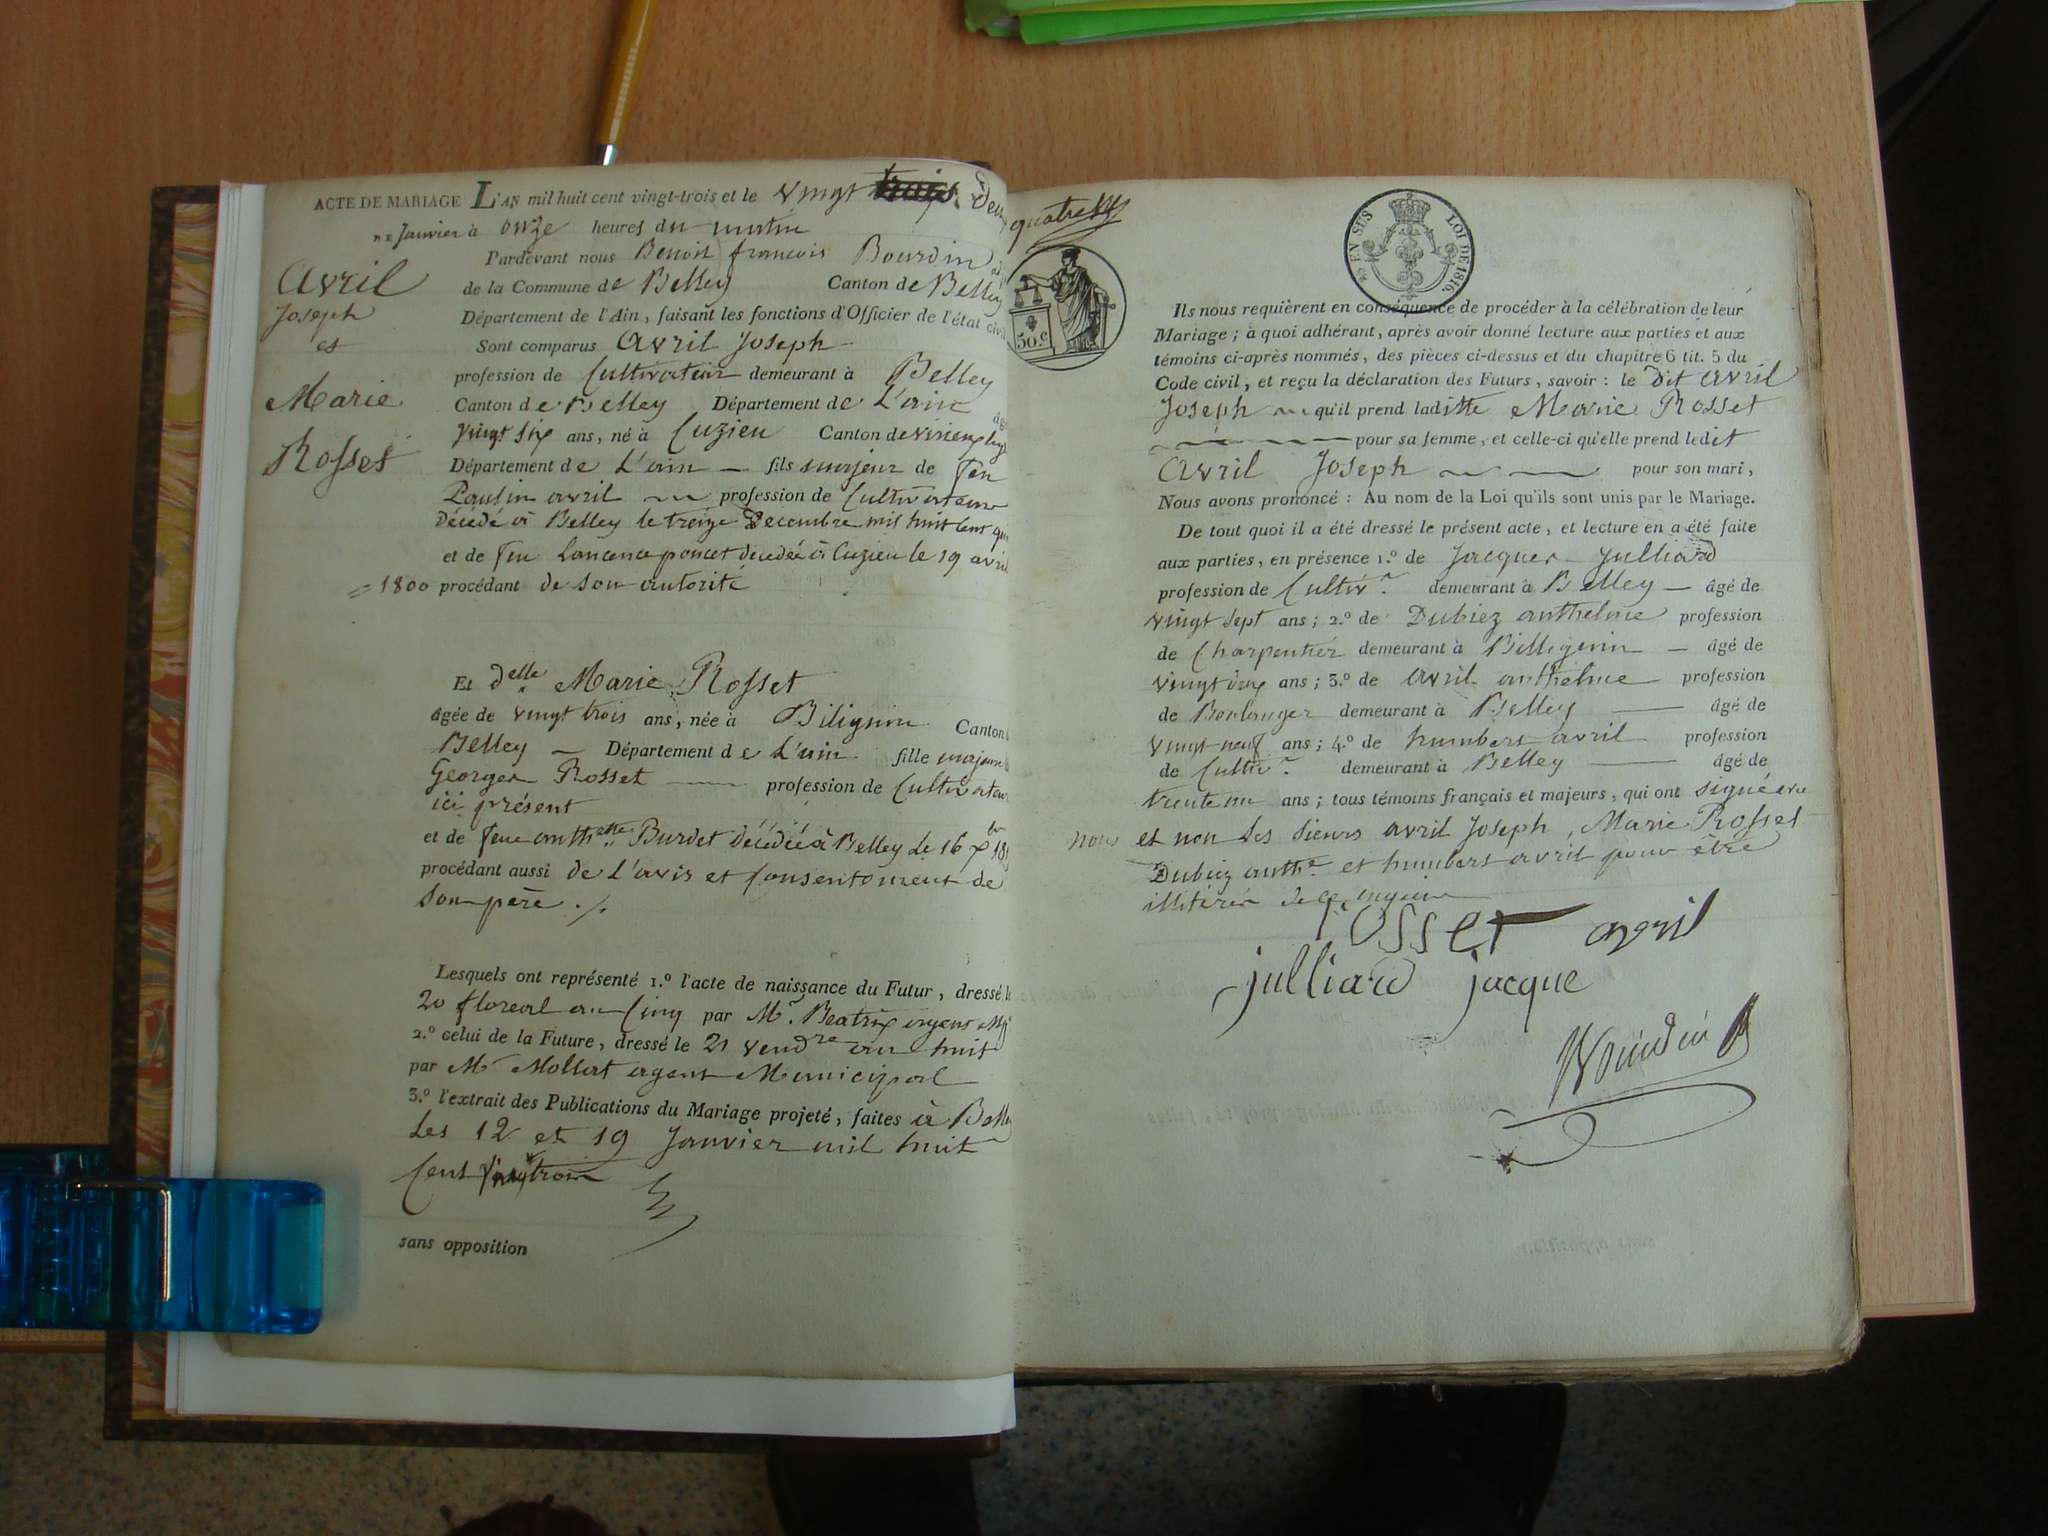 ACTE DE MARIAGE L'AN mil huit cent vingt-trois et le vingt trois deux
Janvier à onze heures du matin
Pardevant nous Benoit françois Bourdin
de la Commune de Belley Canton de Belley
Département de l'Ain, faisant les fonctions d'Officier de l'état civil
Sont comparus Avril Joseph
profession de Cultivateur demeurant à Belley
Canton de Belley Département de L'ain
vingt six ans, né à Cuzieu Canton de
Département de L'ain fils majeur de feu
avril profession de Cultivateur
décédé à Belley le treize Decembre mil huit cent
et de feu poncet decedée à Cuzieu le 19 avril
1800 procédant de son autorité
Avril
Joseph
et
Marie
Rosset
Et delle Marie Rosset
âgée de vingt trois ans, née à Bilignin Canton
Belley Département de L'ain fille majeure
George Rosset profession de Cultivateur
ici présent
et de feue anthelle Burdet décédée à Belley le 16
procédant aussi de L'avis et Consentement de
Son père ./.
Lesquels ont représenté 1.º l'acte de naissance du Futur, dressé le
20 floreal an Cinq par Mr. Beatrix agent
2.º celui de la Future, dressé le 21 vendre an huit
par Mr Mollet agent Municipal
3.º l'extrait des Publications du Mariage projeté, faites à Belley
Les 12 et 19 Janvier mil huit
Cent vingt trois
sans opposition
quatre
EN SUS LOI DE 1816.
50.c
Ils nous requièrent en conséquence de procéder à la célébration de leur
Mariage; à quoi adhérant, après avoir donné lecture aux parties et aux
témoins ci-après nommés, des pièces ci-dessus et du chapitre 6 tit. 5 du
Code civil, et reçu la déclaration des Futurs, savoir: le Dit Avril
Joseph qu'il prend laditte Marie Rosset
pour sa femme, et celle-ci qu'elle prend ledit
Avril Joseph pour son mari,
Nous avons prononcé: Au nom de la Loi qu'ils sont unis par le Mariage.
De tout quoi il a été dressé le présent acte, et lecture en a été faite
aux parties, en présence 1.º de Jacques Julliard
profession de Cultivr. demeurant à Belley âgé de
vingt sept ans; 2.º de Dubiez anthelme profession
de Charpentier demeurant à Billignin âgé de
vingt ans; 3.º de avril anthelme profession
de Boulanger demeurant à Belley âgé de
vingt neuf ans; 4.º de humbert avril profession
de Cultivr. demeurant à Belley âgé de
trente un ans; tous témoins français et majeurs, qui ont signé avec
nous et non les sieurs avril Joseph, Marie Rosset
Dubiez anthe. et humbert avril pour être
illitérés de ce
rosset avril
julliard jacque
Bourdin